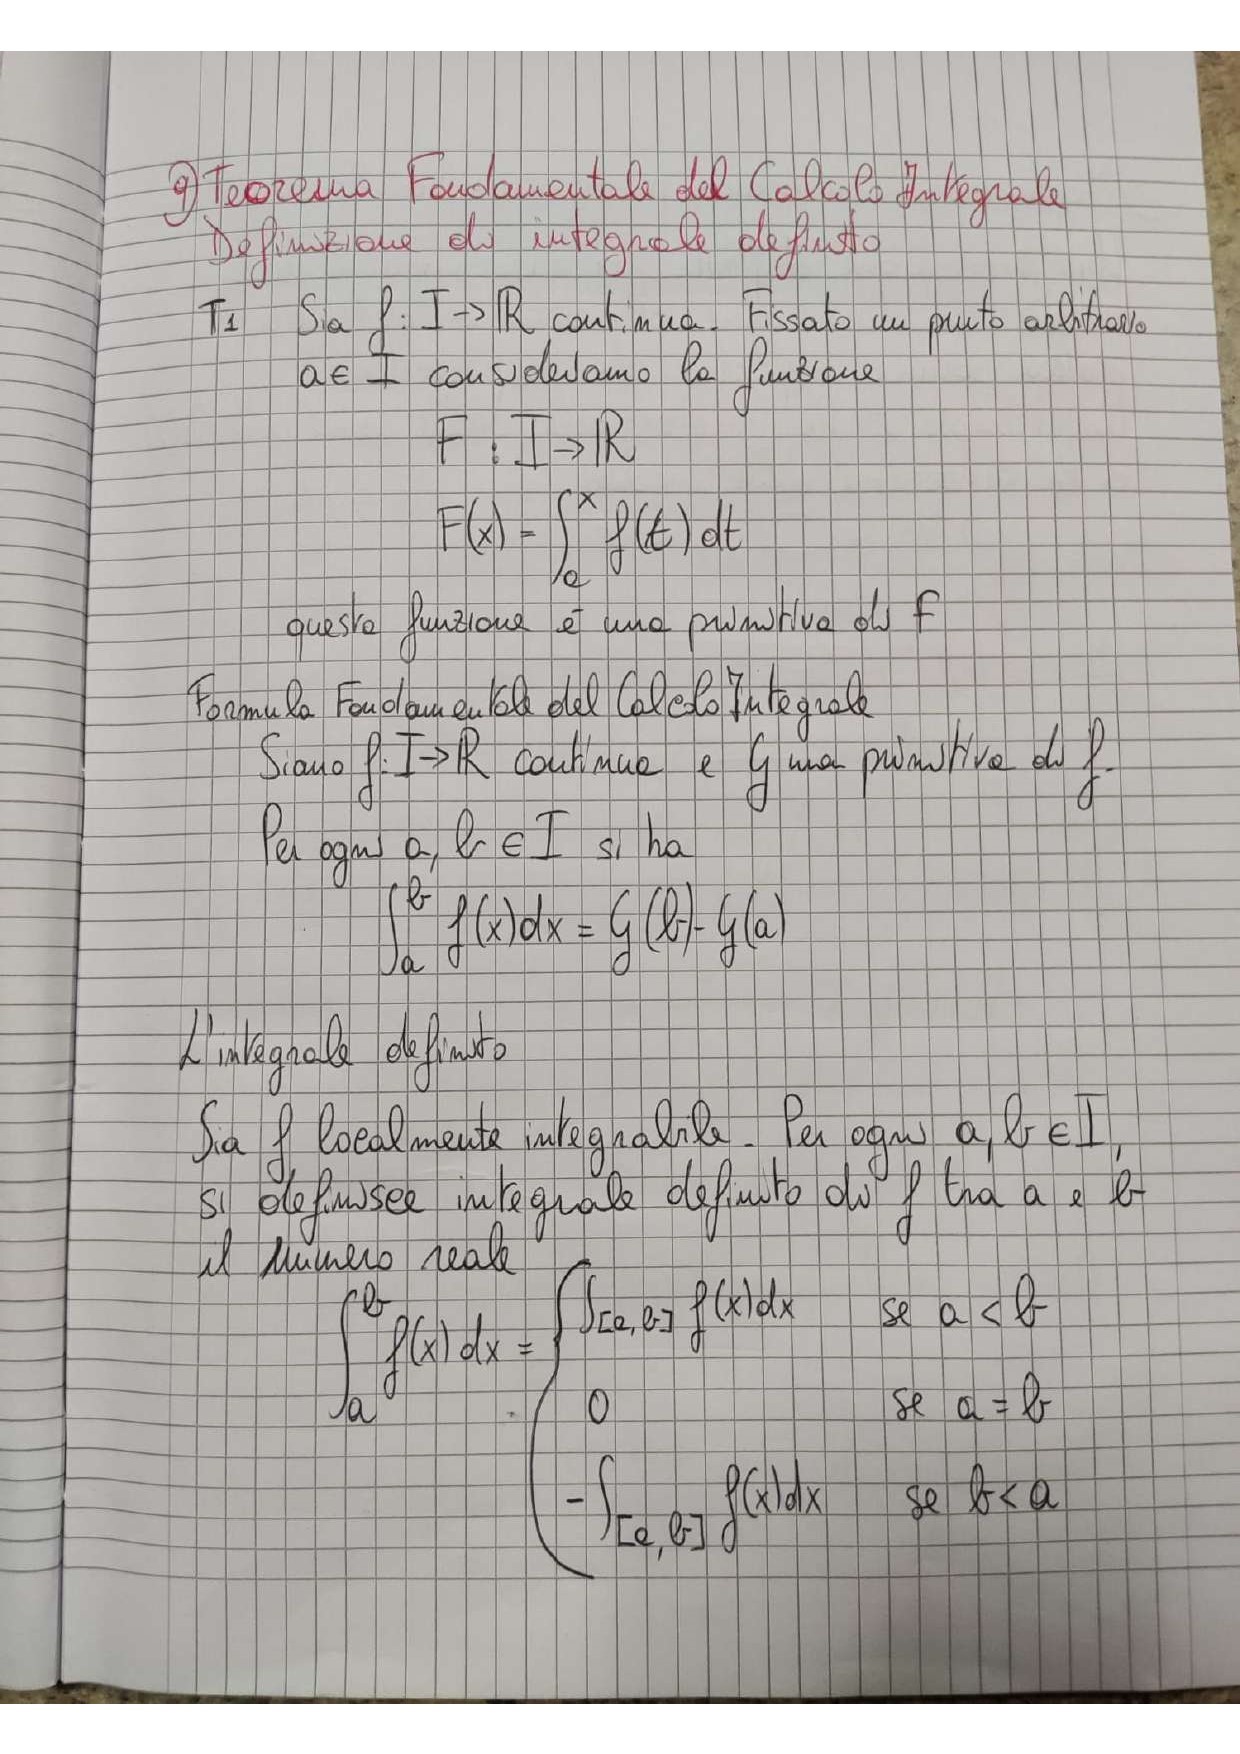 9) Teorema Fondamentale del Calcolo Integrale
Definizione di integrale definito
T1 Sia f: I → ℝ continua. Fissato un punto arbitrario
a ∈ I consideriamo la funzione
F : I → ℝ
F(x) = ∫_a^x f(t) dt
questa funzione è una primitiva di f
Formula Fondamentale del Calcolo Integrale
Siano f: I → ℝ continua e G una primitiva di f.
Per ogni a, b ∈ I si ha
∫_a^b f(x)dx = G(b) - G(a)
L'integrale definito
Sia f localmente integrabile. Per ogni a, b ∈ I,
si definisce integrale definito di f tra a e b
il numero reale
∫_a^b f(x) dx = { ∫_[a,b] f(x)dx se a < b
0 se a = b
-∫_[a,b] f(x)dx se b < a